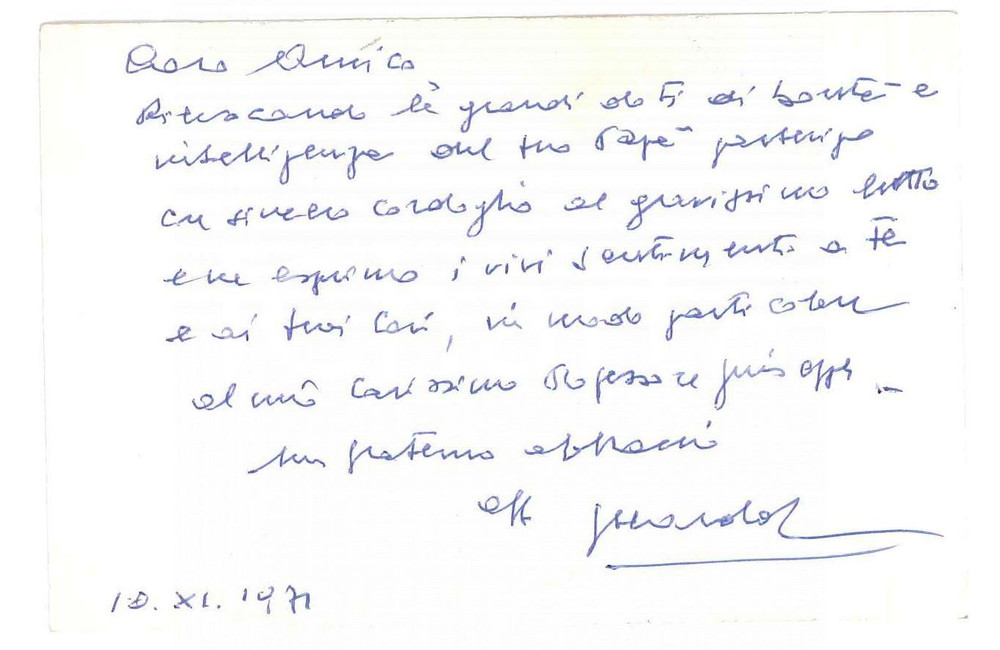 Caro Amico
Rievocando le grandi doti di bontà e
intelligenza del tuo Papà partecipo
con sincero cordoglio al gravissimo lutto
e ne esprimo i vivi sentimenti a Te
e ai tuoi Cari, in modo particolare
al mio Carissimo Professore Giuseppe.
Un fraterno abbraccio
aff
10. XI. 1971